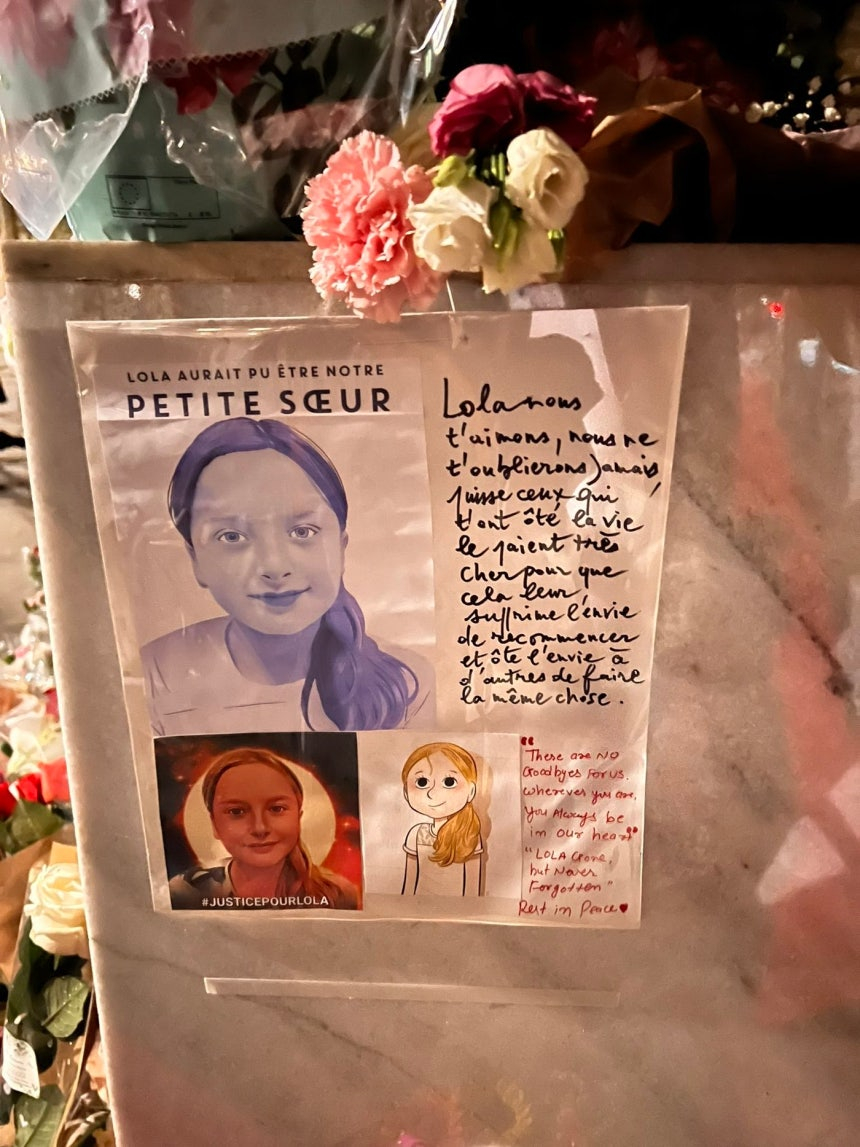 LOLA AURAIT PU ÊTRE NOTRE
PETITE SŒUR
Lola nous
t'aimons, nous ne
t'oublierons jamais
puisse ceux qui
t'ont ôté la vie
le paient très
cher pour que
cela leur
supprime l'envie
de recommencer
et ôte l'envie à
d'autres de faire
la même chose.
#JUSTICEPOURLOLA
"There are No
Goodbyes For us.
wherever you are,
You Always be
in our heart"
"LOLA Gone,
but Never
Forgotten"
Rest in Peace